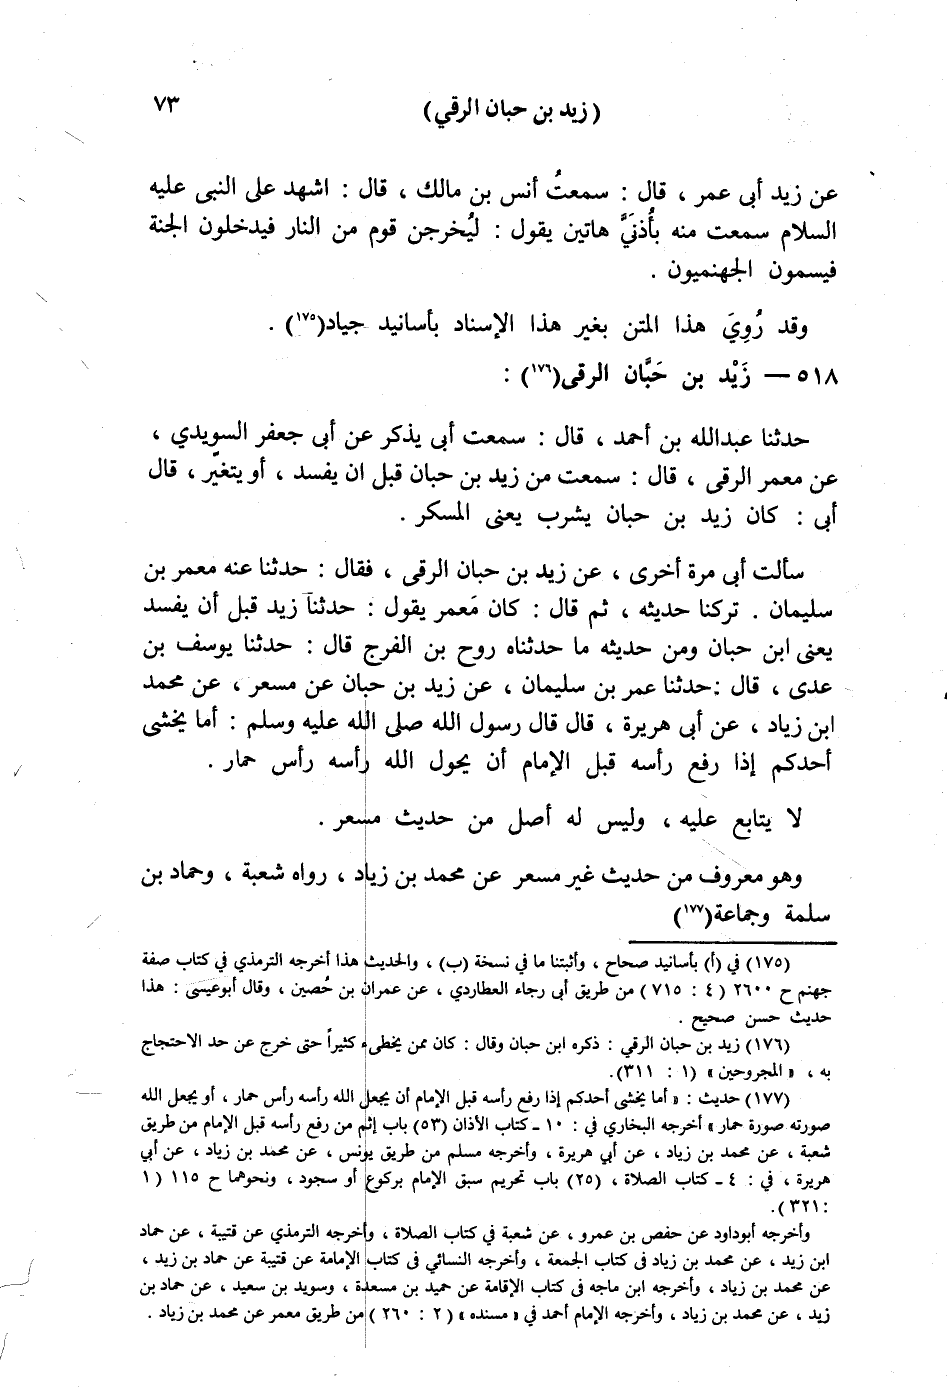 (زيد بن حبان الرقي) ٧٣
عن زيد أبى عمر ، قال : سمعتُ أنس بن مالك ، قال : اشهد على النبى عليه
السلام سمعت منه بأُذنَيَّ هاتين يقول : ليُخرجن قوم من النار فيدخلون الجنة
فيسمون الجهنميون .
وقد رُوِيَ هذا المتن بغير هذا الإسناد بأسانيد جياد(١٧٥) .
٥١٨ — زَيْد بن حَبَّان الرقى(١٧٦) :
حدثنا عبدالله بن أحمد ، قال : سمعت أبى يذكر عن أبى جعفر السويدي ،
عن معمر الرقى ، قال : سمعت من زيد بن حبان قبل ان يفسد ، أو يتغيّر ، قال
أبى : كان زيد بن حبان يشرب يعنى المسكر .
سألت أبى مرة أخرى ، عن زيد بن حبان الرقى ، فقال : حدثنا عنه معمر بن
سليمان . تركنا حديثه ، ثم قال : كان مَعمر يقول : حدثنا زيد قبل أن يفسد
يعنى ابن حبان ومن حديثه ما حدثناه روح بن الفرج قال : حدثنا يوسف بن
عدى ، قال :حدثنا عمر بن سليمان ، عن زيد بن حبان عن مسعر ، عن محمد
ابن زياد ، عن أبى هريرة ، قال قال رسول الله صلى الله عليه وسلم : أما يخشى
أحدكم إذا رفع رأسه قبل الإمام أن يحول الله رأسه رأس حمار .
لا يتابع عليه ، وليس له أصل من حديث مسعر .
وهو معروف من حديث غير مسعر عن محمد بن زياد ، رواه شعبة ، وحماد بن
سلمة وجماعة(١٧٧)
(١٧٥) في (أ) بأسانيد صحاح ، وأثبتنا ما في نسخة (ب) ، والحديث هذا أخرجه الترمذي في كتاب صفة
جهنم ح ٢٦٠٠ (٤ : ٧١٥) من طريق أبى رجاء العطاردي ، عن عمران بن حُصين ، وقال أبوعيسى : هذا
حديث حسن صحيح .
(١٧٦) زيد بن حبان الرقي : ذكره ابن حبان وقال : كان ممن يخطىء كثيراً حتى خرج عن حد الاحتجاج
به ، « المجروحين » (١ : ٣١١).
(١٧٧) حديث : « أما يخشى أحدكم إذا رفع رأسه قبل الإمام أن يجعل الله رأسه رأس حمار ، أو يجعل الله
صورته صورة حمار » أخرجه البخاري في : ١٠ ـ كتاب الأذان (٥٣) باب إثم من رفع رأسه قبل الإمام من طريق
شعبة ، عن محمد بن زياد ، عن أبي هريرة ، وأخرجه مسلم من طريق يونس ، عن محمد بن زياد ، عن أبي
هريرة ، في : ٤ ـ كتاب الصلاة ، (٢٥) باب تحريم سبق الإمام بركوع أو سجود ، ونحوهما ح ١١٥ (١
: ٣٢١).
وأخرجه أبوداود عن حفص بن عمرو ، عن شعبة في كتاب الصلاة ، وأخرجه الترمذي عن قتيبة ، عن حماد
ابن زيد ، عن محمد بن زياد فى كتاب الجمعة ، وأخرجه النسائي فى كتاب الإمامة عن قتيبة عن حماد بن زيد ،
عن محمد بن زياد ، وأخرجه ابن ماجه فى كتاب الإقامة عن حميد بن مسعدة ، وسويد بن سعيد ، عن حماد بن
زيد ، عن محمد بن زياد ، وأخرجه الإمام أحمد في « مسنده » (٢ : ٢٦٠) من طريق معمر عن محمد بن زياد .